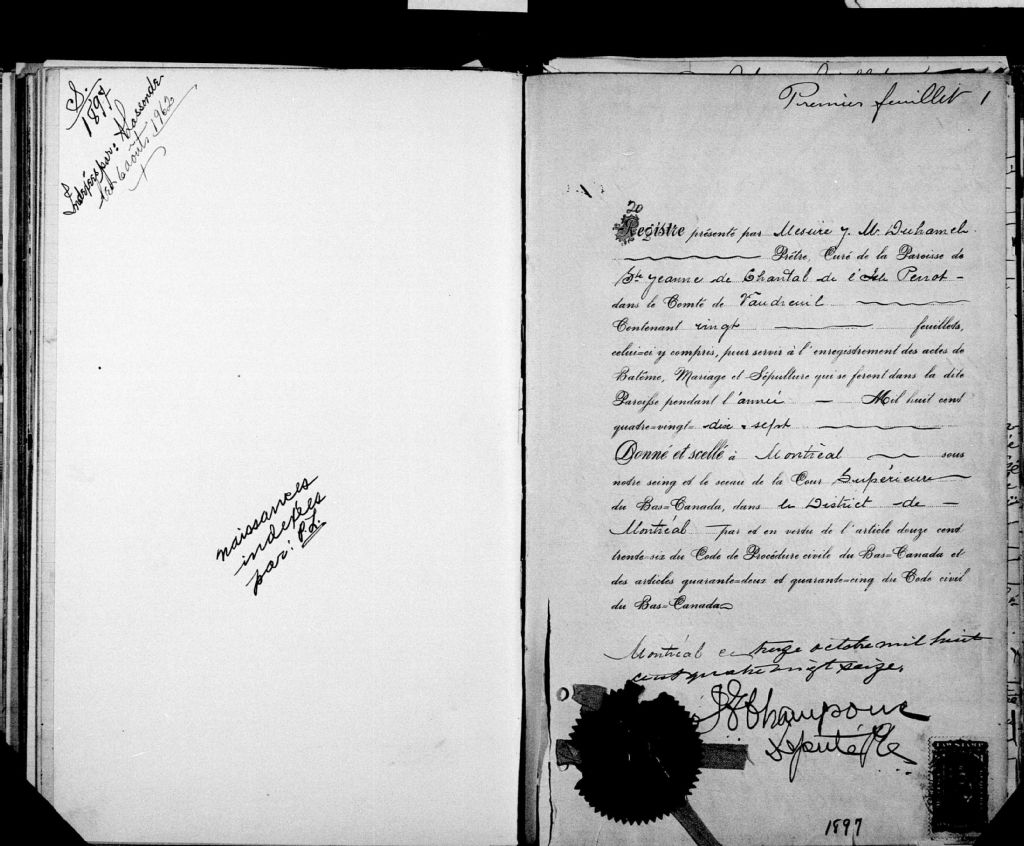 S.
1897
Indexée par: Lassonde
le 6 août 1962
naissances
indexées
par: P.L.
Premier feuillet 1
20
Registre présenté par Messire J. M. Duhamel
Prêtre, Curé de la Paroisse de
Ste Jeanne de Chantal de l'Isle Perrot
dans le Comté de Vaudreuil
Contenant vingt feuillets,
celui=ci y compris, pour servir à l'enregistrement des actes de
Batême, Mariage et Sépulture qui se feront dans la dite
Paroisse pendant l'année Mil huit cent
quatre=vingt= dix-sept
Donné et scellé à Montréal sous
notre seing et le sceau de la Cour Supérieure
du Bas=Canada, dans le District de
Montréal par et en vertu de l'article douze cent
trente=six du Code de Procédure civile du Bas=Canada et
des articles quarante=deux et quarante=cinq du Code civil
du Bas=Canada
Montréal ce treize octobre mil huit
cent quatre vingt seize.
Champoux
Député P
1897